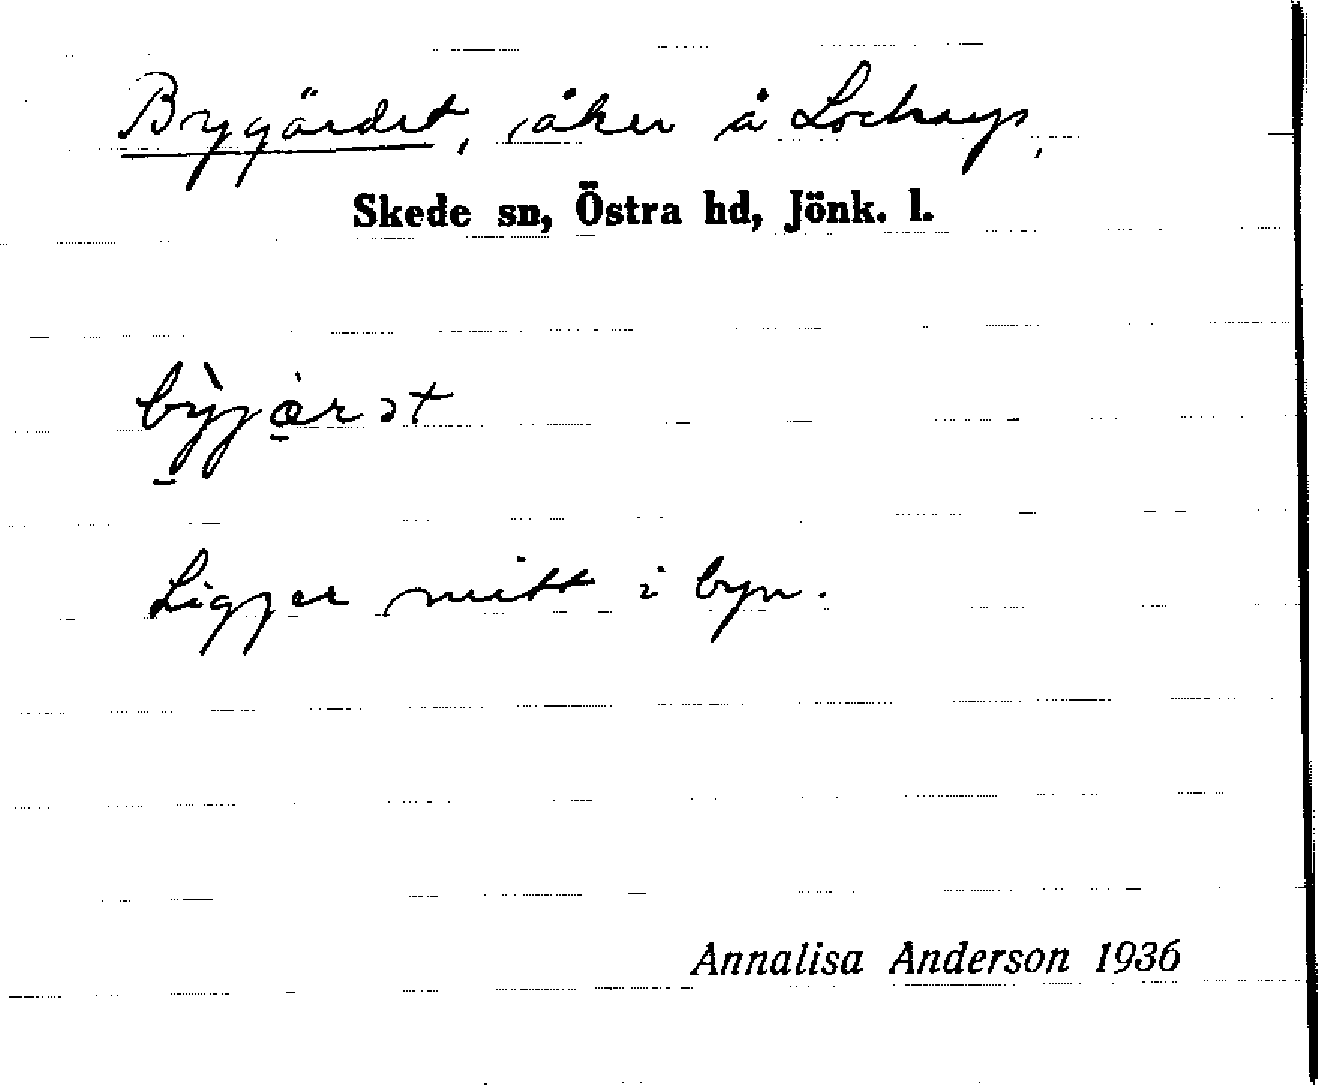 Brygärdet, åker å Lockarp,
Skede sn, Östra hd, Jönk. l.
bỳjæ̀rət
Ligger mitt i byn.
Annalisa Anderson 1936